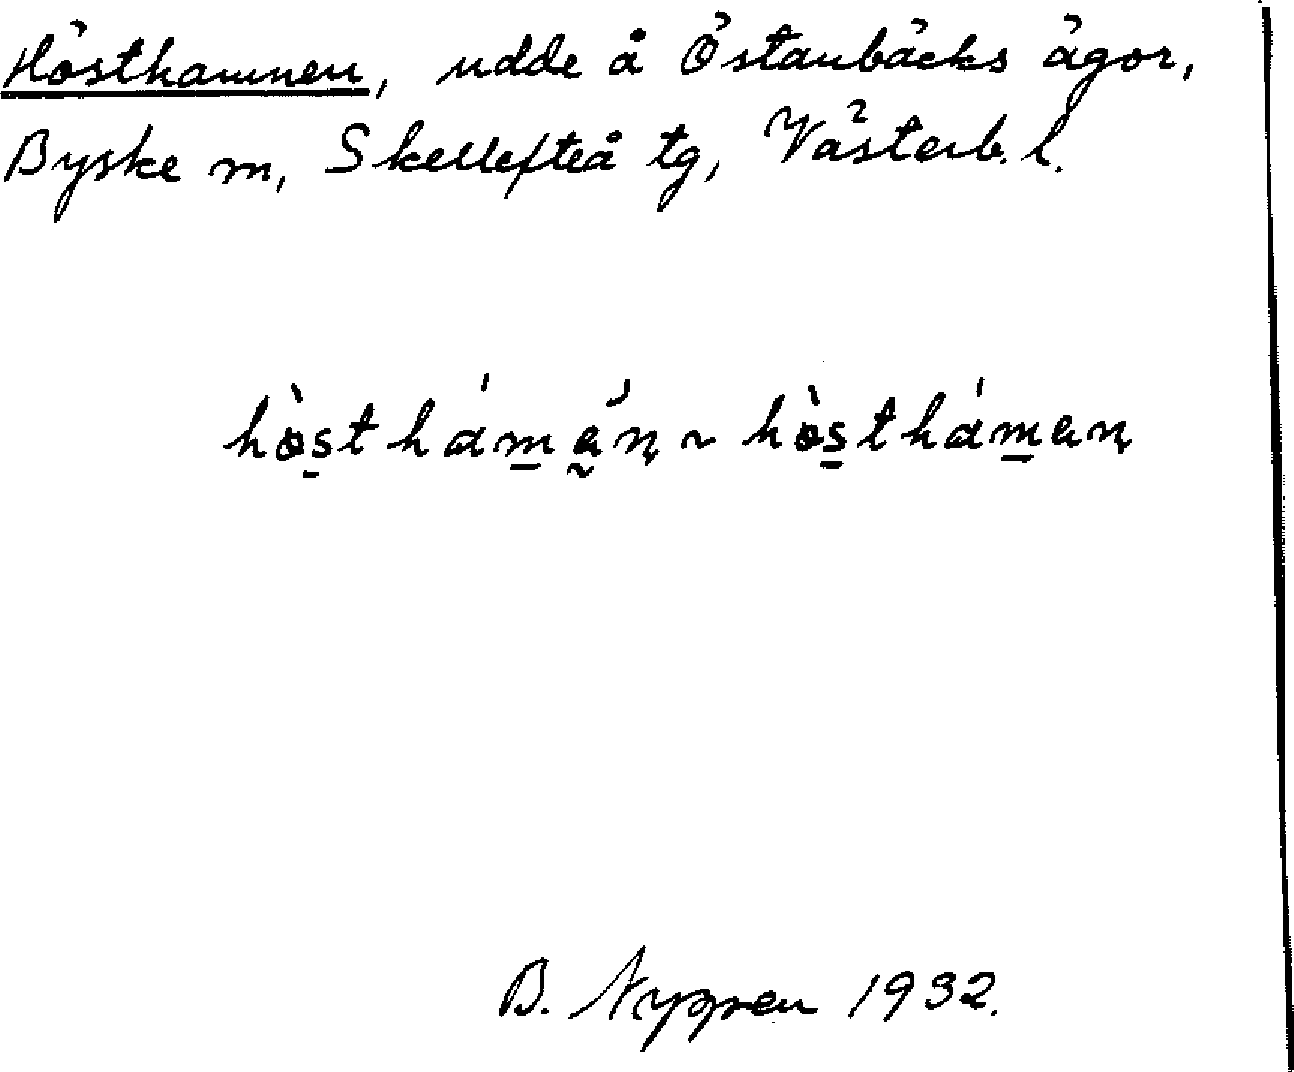 Hösthamnen, udde å Östanbäcks ägor,
Byske sn, Skellefteå tg, Västerb. l.
hòsthámǝ́n ~ hòsthámen
B. Nygren 1932.